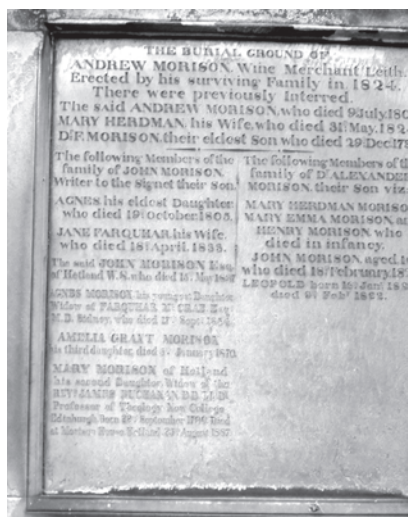 THE BURIAL GROUND OF
ANDREW MORISON, Wine Merchant Leith.
Erected by his surviving Family in 1824.
There were previously Interred.
The said ANDREW MORISON, who died 9th July
MARY HERDMAN, his Wife, who died 31st May,
MORISON, their eldest Son who died 29th Dec
The following Members of the
family of JOHN MORISON
Writer to the Signet their Son.
AGNES his eldest Daughter
who died 19th October 1803.
JANE FARQUHAR his Wife
who died 18th April, 1833.
The said JOHN MORISON Esq
of Hetland W.S. who died May
AGNES MORISON his youngest Daughter
Widow of FARQUHAR Esq
M.D. Sidney, who died Sept
AMELIA GRANT MORISON
his third daughter, died January 1870.
MARY MORISON of Hetland
his second Daughter, Widow of the
REVD JAMES BUCHANAN
Professor of Theology New College
Edinburgh, Born September Died
at House August
The following Members of th
family of Dr ALEXANDER
MORISON, their Son viz.
MARY HERDMAN MORISO
MARY EMMA MORISON, a
HENRY MORISON who
died in infancy.
JOHN MORISON, aged
who died 18th February,
LEOPOLD born Jany
died Feby 1822.